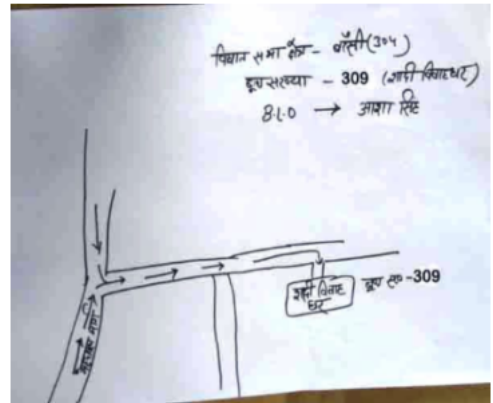 विधान सभा क्षेत्र - बाँसी (304)
बूथ संख्या - 309 (शादी विवाह घर)
B.L.O → आशा सिंह
शादी विवाह
घर
बूथ सं० -309